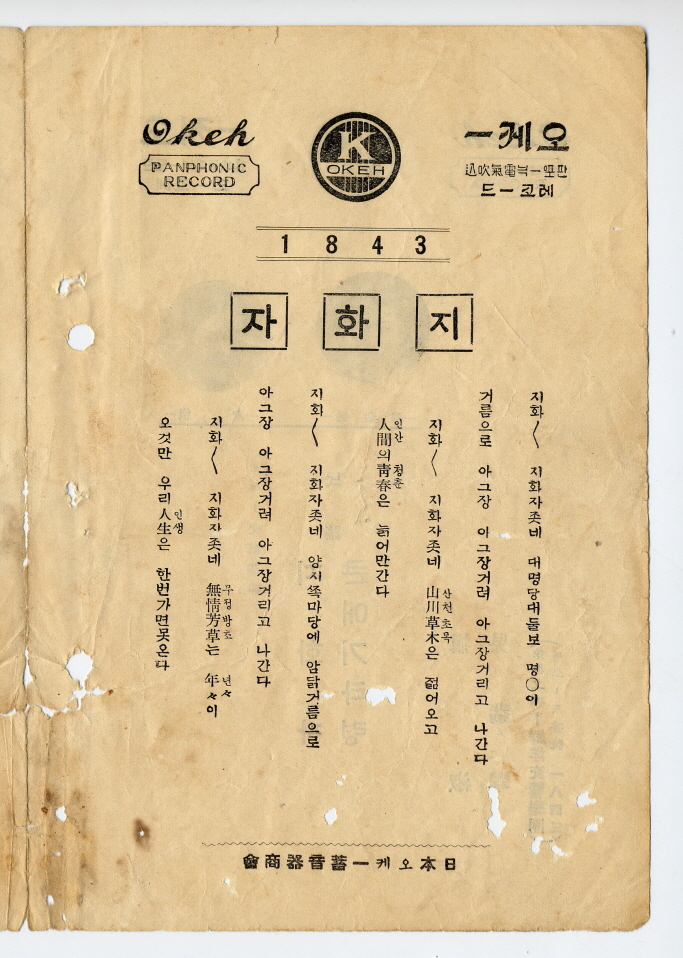 Okeh
PANPHONIC
RECORD
K
OKEH
오케ー
電氣吹込
레코ー드
1843
지화자
지화〱 지화자좃네 대명당대들보 명○이
거름으로 아그장 아그장거려 아그장거리고 나간다
지화〱 지화자좃네 山川草木은 젊어오고
산천초목
人間의靑春은 늙어만간다
인간 청춘
지화〱 지화자좃네 양지쪽마당에 암닭거름으로
아그장 아그장거려 아그장거리고 나간다
지화〱 지화자좃네 無情芳草는 年々이
무정방초 년々
오것만 우리人生은 한번가면못온다
인생
日本오케ー蓄音器商會